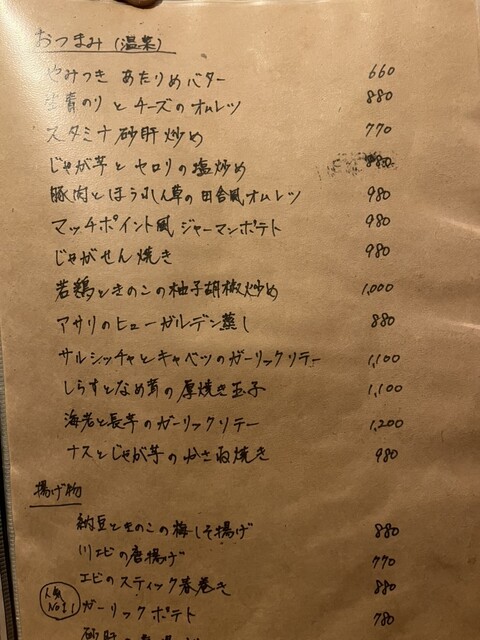 おつまみ (温菜)
やみつき あたりめバター 660
生青のりとチーズのオムレツ 880
スタミナ砂肝炒め 770
じゃが芋とセロリの塩炒め 880
豚肉とほうれん草の田舎風オムレツ 980
マッチポイント風 ジャーマンポテト 980
じゃがせん焼き 980
若鶏ときのこの柚子胡椒炒め 1,000
アサリのヒューガルデン蒸し 880
サルシッチャとキャベツのガーリックソテー 1,100
しらすとなめ茸の厚焼き玉子 1,100
海老と長芋のガーリックソテー 1,200
ナスとじゃが芋の 焼き 980
揚げ物
納豆ときのこの梅しそ揚げ 880
川エビの唐揚げ 770
エビのスティック春巻き 880
人気No.1! ガーリックポテト 780
砂肝